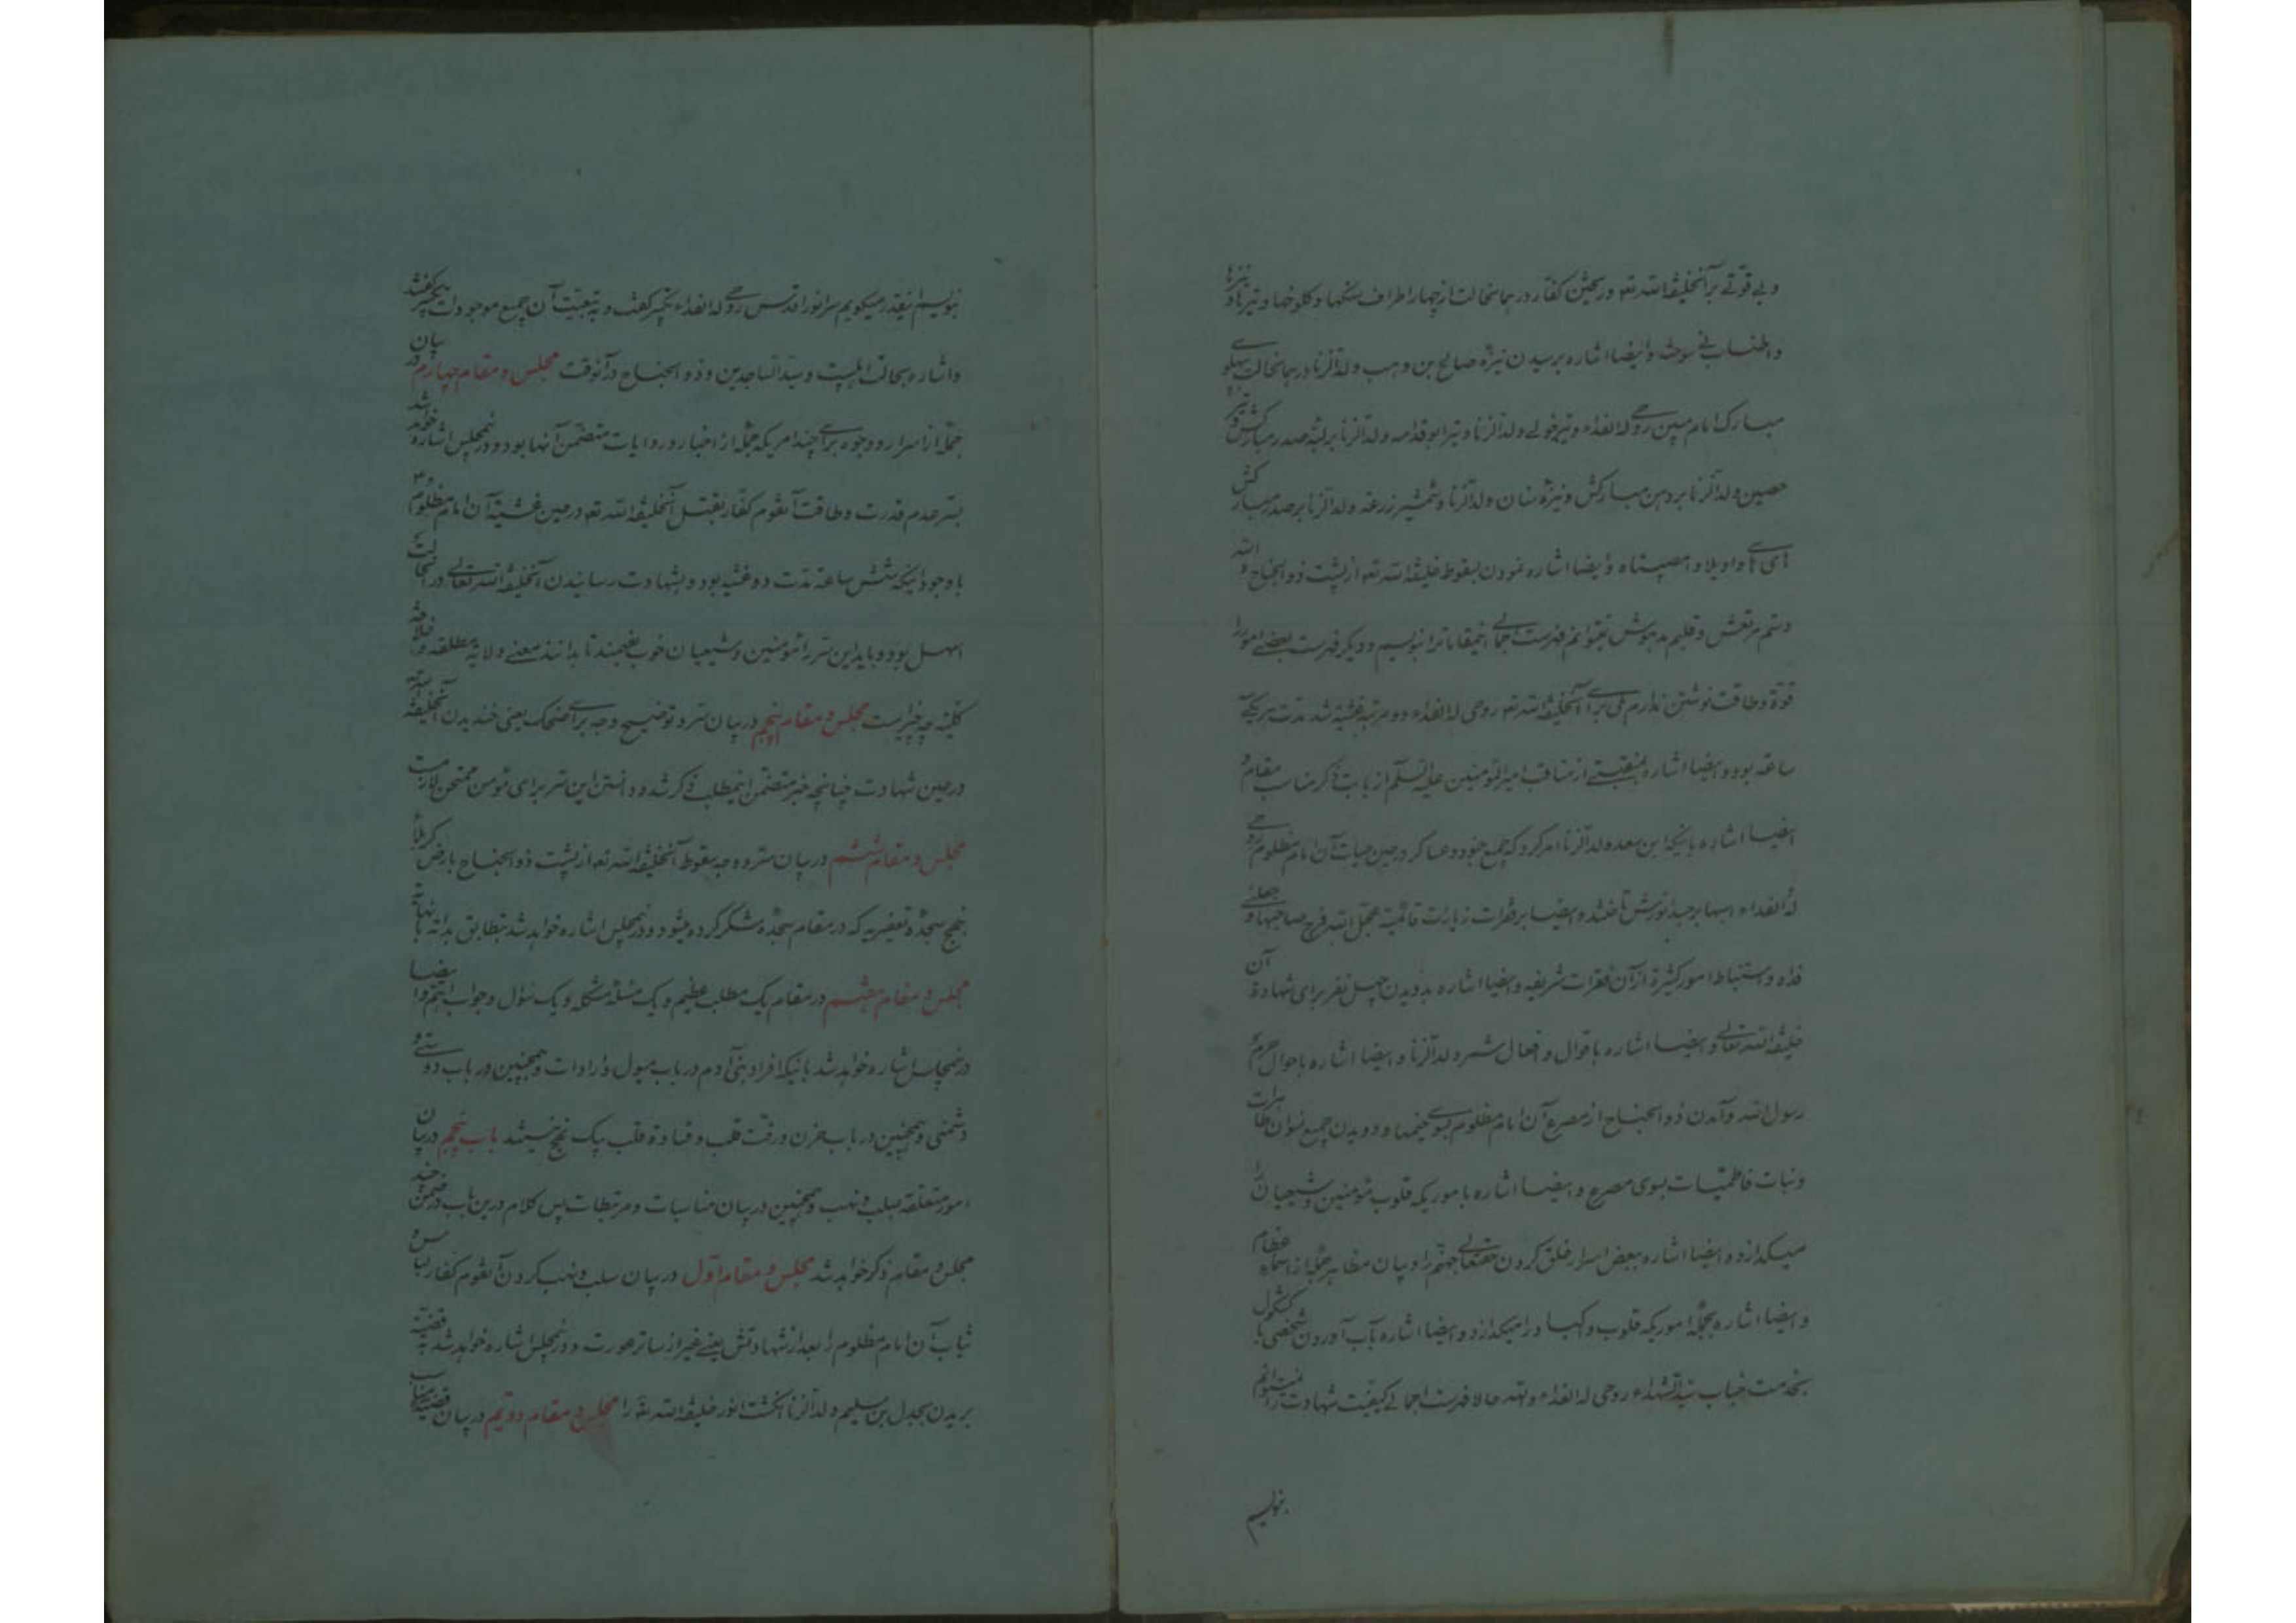 و بی قوتی بر آنخلیفة الله تعه و ریختن کفار در همانحالت از چهار اطراف سنکها و کلوخها و تیرها و نیزها
و ایضا اشاره برسیدن نیزه صالح بن وهب ولد الزنا در همانحالت پهلوی
مبارک امام مبین روحی له الفداء و تیر خولی ولد الزنا و تیر ابو قدامه ولد الزنا بر لبّه صدر مبارکش و تیر
حصین ولد الزنا بر دهن مبارکش و نیزه سنان ولد الزنا و شمشیر زرعه ولد الزنا بر صدر مبارکش
ای های واویلا وا مصیبتاه و ایضا اشاره نمودن بسقوط خلیفة الله تعه از پشت ذو الجناح و الله
دستم مرتعش و قلبم مدهوش نمیتوانم فهرست اجمالی اینمقامات را بنویسم و دیکر فهرست بعضی امور را
قوة و طاقت نوشتن ندارم بلی برای آنخلیفة الله تعه روحی له الفداء دو مرتبه غشیه شد مدت هر یکی
ساعة بود و ایضا اشاره بمنقبتی از مناقب امیر المؤمنین علیه السلام از بابت ذکر مناسب مقام و
ایضا اشاره باینکه ابن سعد ولد الزنا امر کرد که جمیع جنود و عساکر در حین حیات آن امام مظلوم روحی
له الفداء اسبها بر جسد انورش تاختند و ایضا بر فقرات زیارت قائمیة عجل الله فرج صاحبها و جعلنی
فداه و استنباط امور کثیرة از آن فقرات شریفه و ایضا اشاره بدویدن چهل نفر برای شهادة آن
خلیفة الله تعالی و ایضا اشاره باقوال و افعال شمر ولد الزنا و ایضا اشاره باحوال حرم
رسول الله و آمدن ذو الجناح از مصرع آن امام مظلوم بسوی خیمها و دویدن جمیع نسوان طاهرات
و بنات فاطمیات بسوی مصرع و ایضا اشاره باموریکه قلوب مؤمنین و شیعیان را
میکدازد و ایضا اشاره ببعض اسرار خلق کردن حقتعالی جهنم را و بیان مظاهر جملة از اسماء عظام
و ایضا اشاره بجملة اموریکه قلوب و اکباد را میکدازد و ایضا اشاره بآب آوردن شخصی با کشکول
بخدمت جناب سید الشهداء روحی له الفداء و الله حالا فهرست اجمالی کیفیت شهادت را نمیتوانم
بنویسم
بنویسم اینقدر میکویم سر انور اقدس روحی له الفداء تکبیر کفت و به تبعیت آن جمیع موجودات تکبیر کفتند
و اشاره بحالت اهلبیت و سید الساجدین و ذو الجناح در آنوقت مجلس و مقام چهارم در بیان
جملة از اسرار و وجوه برای چند امریکه جملة از اخبار و روایات متضمن آنها بود و در اینمجلس اشاره خواهد شد
بسر عدم قدرت و طاقت آنقوم کفار بقتل آنخلیفة الله تعه در حین غشیة آن امام مظلوم
با وجود اینکه شش ساعة مدت دو غشیه بود و بشهادت رسانیدن آنخلیفة الله تعالی در آنحالت
اسهل بود و باید این سر را مؤمنین و شیعیان خوب بفهمند تا بدانند معنی ولایة مطلقه و خلافة
کلیه چه چیز است مجلس و مقام پنجم در بیان سر و توضیح وجه برای ضحک یعنی خندیدن آنخلیفة الله تعه
در حین شهادت چنانچه خبر متضمن اینمطلب ذکر شد و دانستن این سر برای مؤمن ممتحن لازمست
مجلس و مقام ششم در بیان سر و وجه سقوط آنخلیفة الله تعه از پشت ذو الجناح بارض کربلا
بنهج سجده و تعفیریه که در مقام سجده شکر کرده میشود و در اینمجلس اشاره خواهد شد
مجلس و مقام هفتم در مقام یک مطلب عظیم و یک مسئله مشکله و یک سؤال و جواب اهم و ایضا
در اینمجلس اشاره خواهد شد باینکه افراد بنی آدم در باب میول و ارادات و همچنین در باب دوستی و
دشمنی و همچنین در باب حزن و رقت قلب و قساوة قلب یک نهج نیستند باب پنجم در بیان
امور متعلقه بسلب و نهب و همچنین در بیان مناسبات و مرتبطات پس کلام درین باب در ضمن چند
مجلس و مقام ذکر خواهد شد مجلس و مقام اول در بیان سلب و نهب کردن آنقوم کفار لباس و
ثیاب آن امام مظلوم را بعد از شهادتش یعنی غیر از ساتر عورت و در اینمجلس اشاره خواهد شد به قضیة
بریدن بجدل بن سلیم ولد الزنا انکشت انور خلیفة الله تعه را مجلس و مقام دویم در بیان قضیة